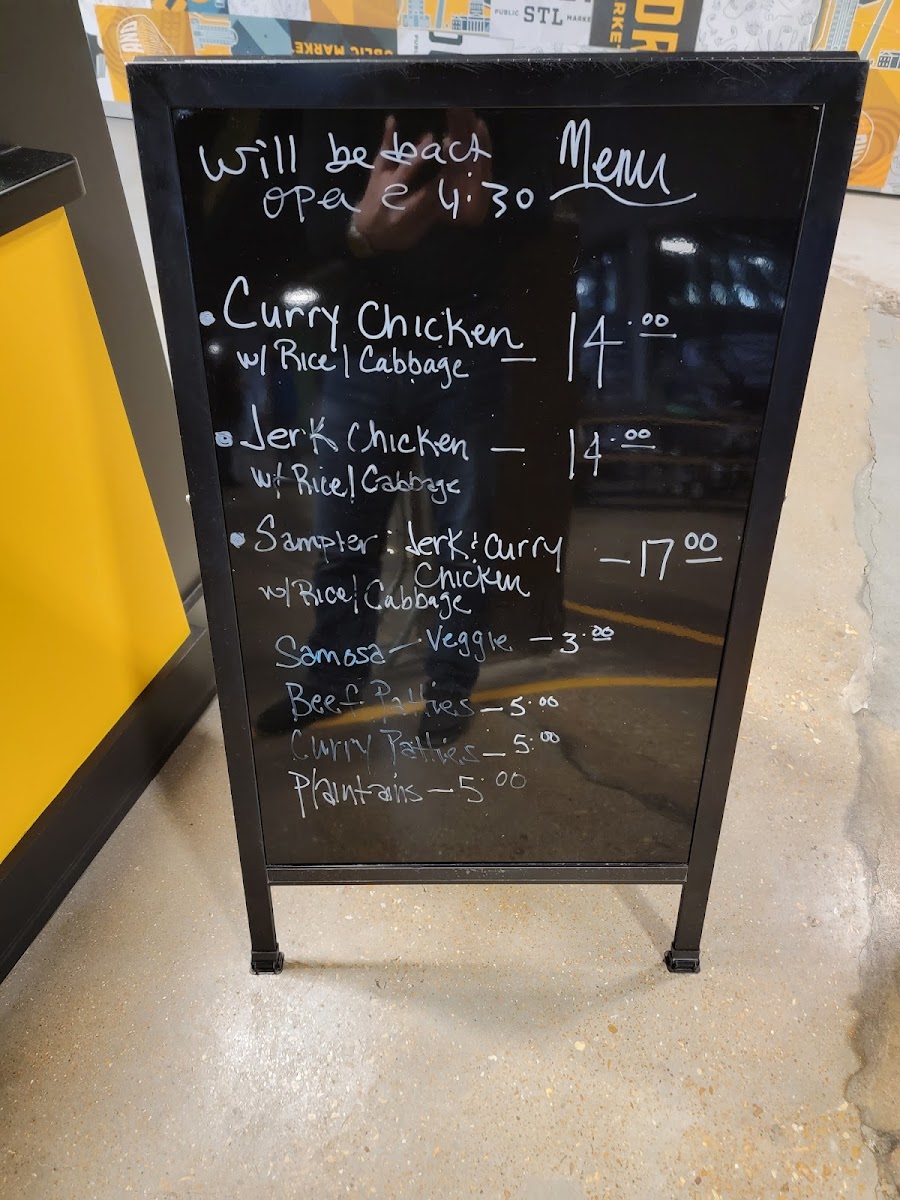 PUBLIC STL MARKE
PUBLIC MARKE
Will be back
open @ 4:30
Menu
• Curry Chicken
w/ Rice / Cabbage — 14.00
• Jerk Chicken — 14.00
w/ Rice / Cabbage
• Sampler: Jerk & Curry — 17.00
Chicken
w/ Rice / Cabbage
Samosa — Veggie — 3.00
Beef Patties — 5.00
Curry Patties — 5.00
Plaintains — 5.00